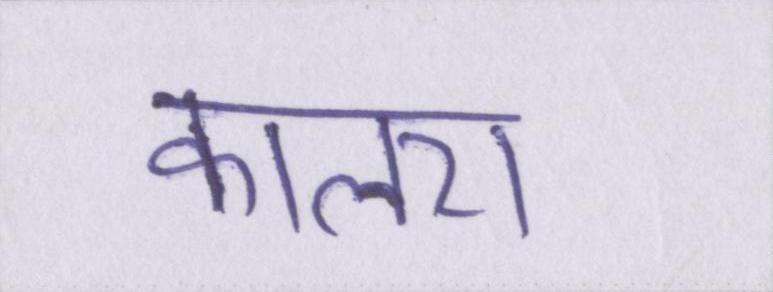 कालरा